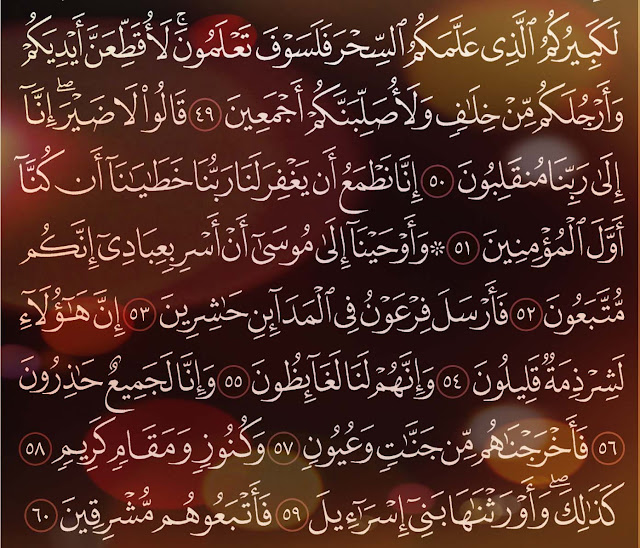 لَكَبِيرُكُمُ ٱلَّذِى عَلَّمَكُمُ ٱلسِّحْرَ فَلَسَوْفَ تَعْلَمُونَ ۚ لَأُقَطِّعَنَّ أَيْدِيَكُمْ
وَأَرْجُلَكُم مِّنْ خِلَٰفٍ وَلَأُصَلِّبَنَّكُمْ أَجْمَعِينَ ٤٩ قَالُوا۟ لَا ضَيْرَ ۖ إِنَّآ
إِلَىٰ رَبِّنَا مُنقَلِبُونَ ٥٠ إِنَّا نَطْمَعُ أَن يَغْفِرَ لَنَا رَبُّنَا خَطَٰيَٰنَآ أَن كُنَّآ
أَوَّلَ ٱلْمُؤْمِنِينَ ٥١ ۞ وَأَوْحَيْنَآ إِلَىٰ مُوسَىٰٓ أَنْ أَسْرِ بِعِبَادِىٓ إِنَّكُم
مُّتَّبَعُونَ ٥٢ فَأَرْسَلَ فِرْعَوْنُ فِى ٱلْمَدَآئِنِ حَٰشِرِينَ ٥٣ إِنَّ هَٰٓؤُلَآءِ
لَشِرْذِمَةٌ قَلِيلُونَ ٥٤ وَإِنَّهُمْ لَنَا لَغَآئِظُونَ ٥٥ وَإِنَّا لَجَمِيعٌ حَٰذِرُونَ
٥٦ فَأَخْرَجْنَٰهُم مِّن جَنَّٰتٍ وَعُيُونٍ ٥٧ وَكُنُوزٍ وَمَقَامٍ كَرِيمٍ ٥٨
كَذَٰلِكَ ۖ وَأَوْرَثْنَٰهَا بَنِىٓ إِسْرَٰٓءِيلَ ٥٩ فَأَتْبَعُوهُم مُّشْرِقِينَ ٦٠